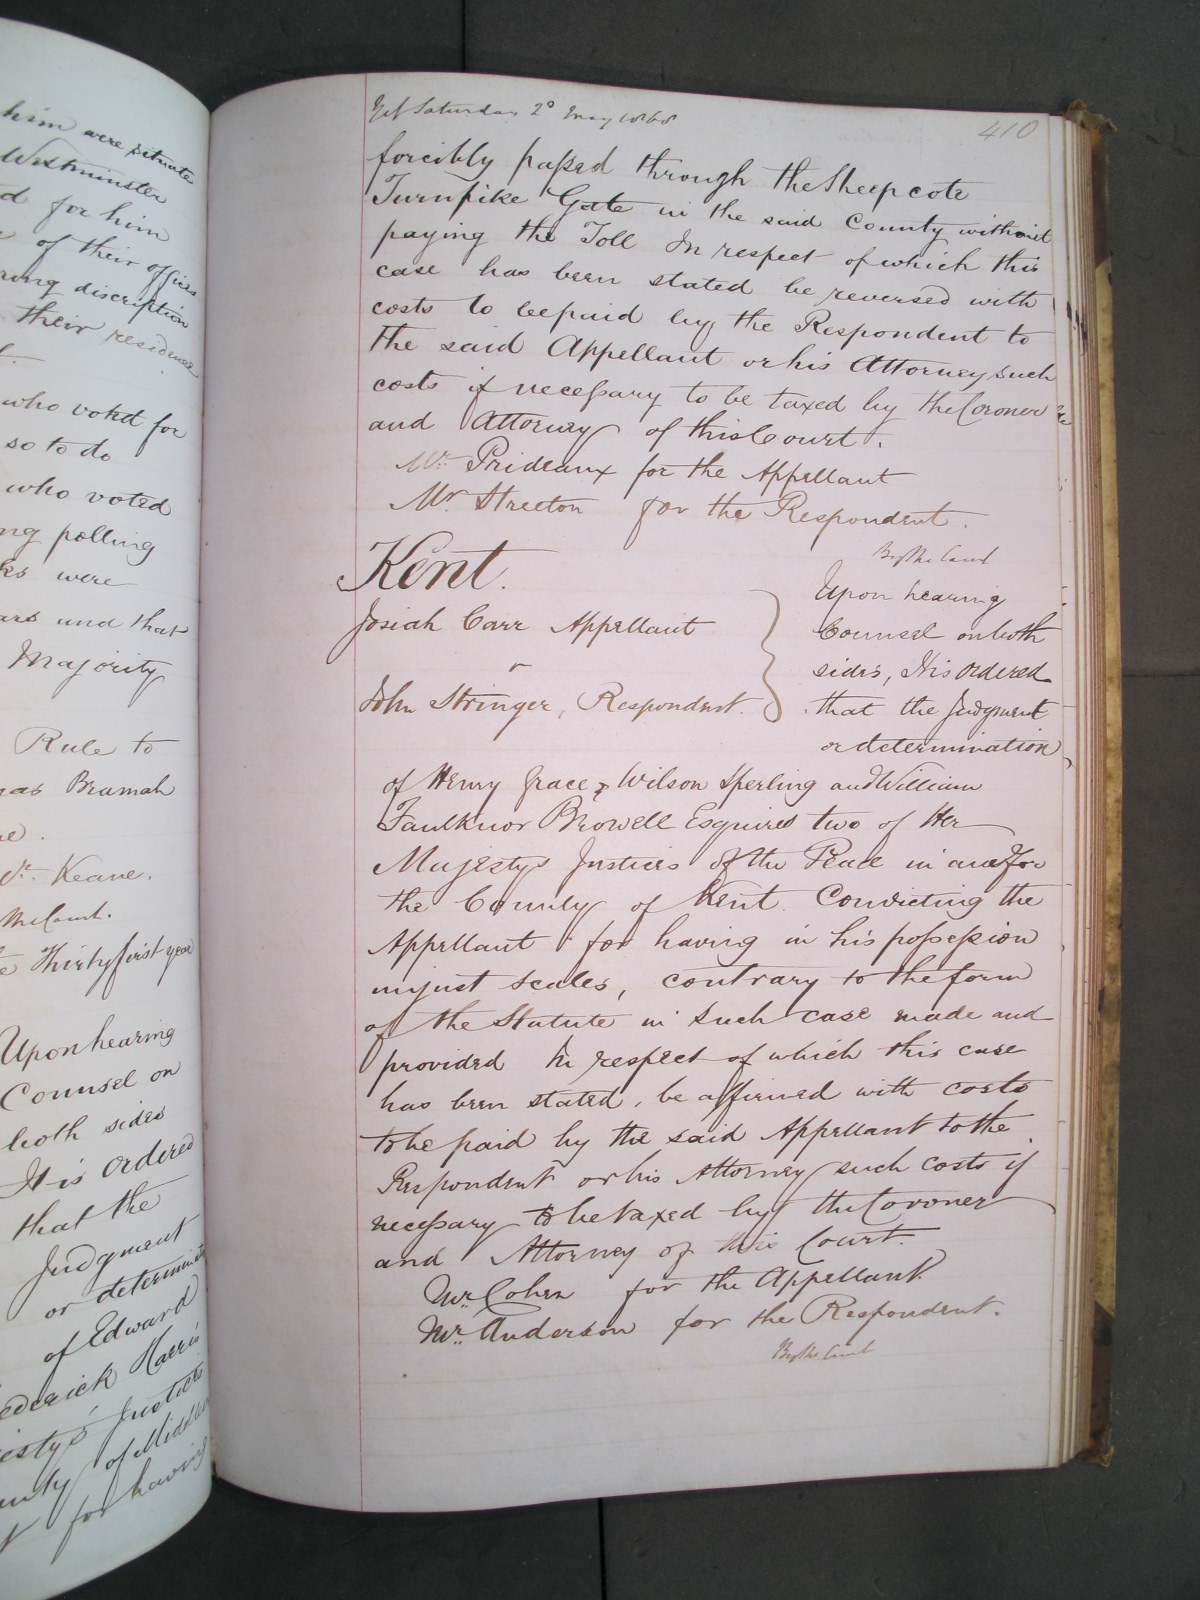 him were situate
Westminster
d for him
of their offices
rong discription
their residence
who voted for
so to do
who voted
ng polling
ks were
ars and that
Majority
Rule to
as Bramah
Keane.
The Court.
Thirty first year
Upon hearing
Counsel on
both sides
It is Ordered
that the
Judgment
or determinat
of Edward
ederick Harris
esty's Justices
unty of Middle
for having
Yet Saturday 2d May 1868
410
forcibly passed through the Sheepcote
Turnpike Gate in the said County without
paying the Toll In respect of which this
case has been stated be reversed with
costs to be paid by the Respondent to
the said Appellant or his Attorney such
costs if necessary to be taxed by the Coroner
and Attorney of this Court.
Mr. Prideaux for the Appellant
Mr. Streeton for the Respondent.
By the Court
Kent.
Josiah Carr Appellant
v
John Stringer, Respondent.
Upon hearing
Counsel on both
sides, It is Ordered
that the Judgment
or determination
of Henry Grace Wilson Sperling and William
Faulknor Browell Esquires two of Her
Majestys Justices of the Peace in and for
the County of Kent Convicting the
Appellant for having in his possession
unjust scales, contrary to the form
of the Statute in such case made and
provided In respect of which this case
has been stated, be affirmed with costs
to be paid by the said Appellant to the
Respondent or his Attorney such costs if
necessary to be taxed by the Coroner
and Attorney of this Court.
Mr. Cohen for the Appellant.
Mr. Anderson for the Respondent.
By the Court